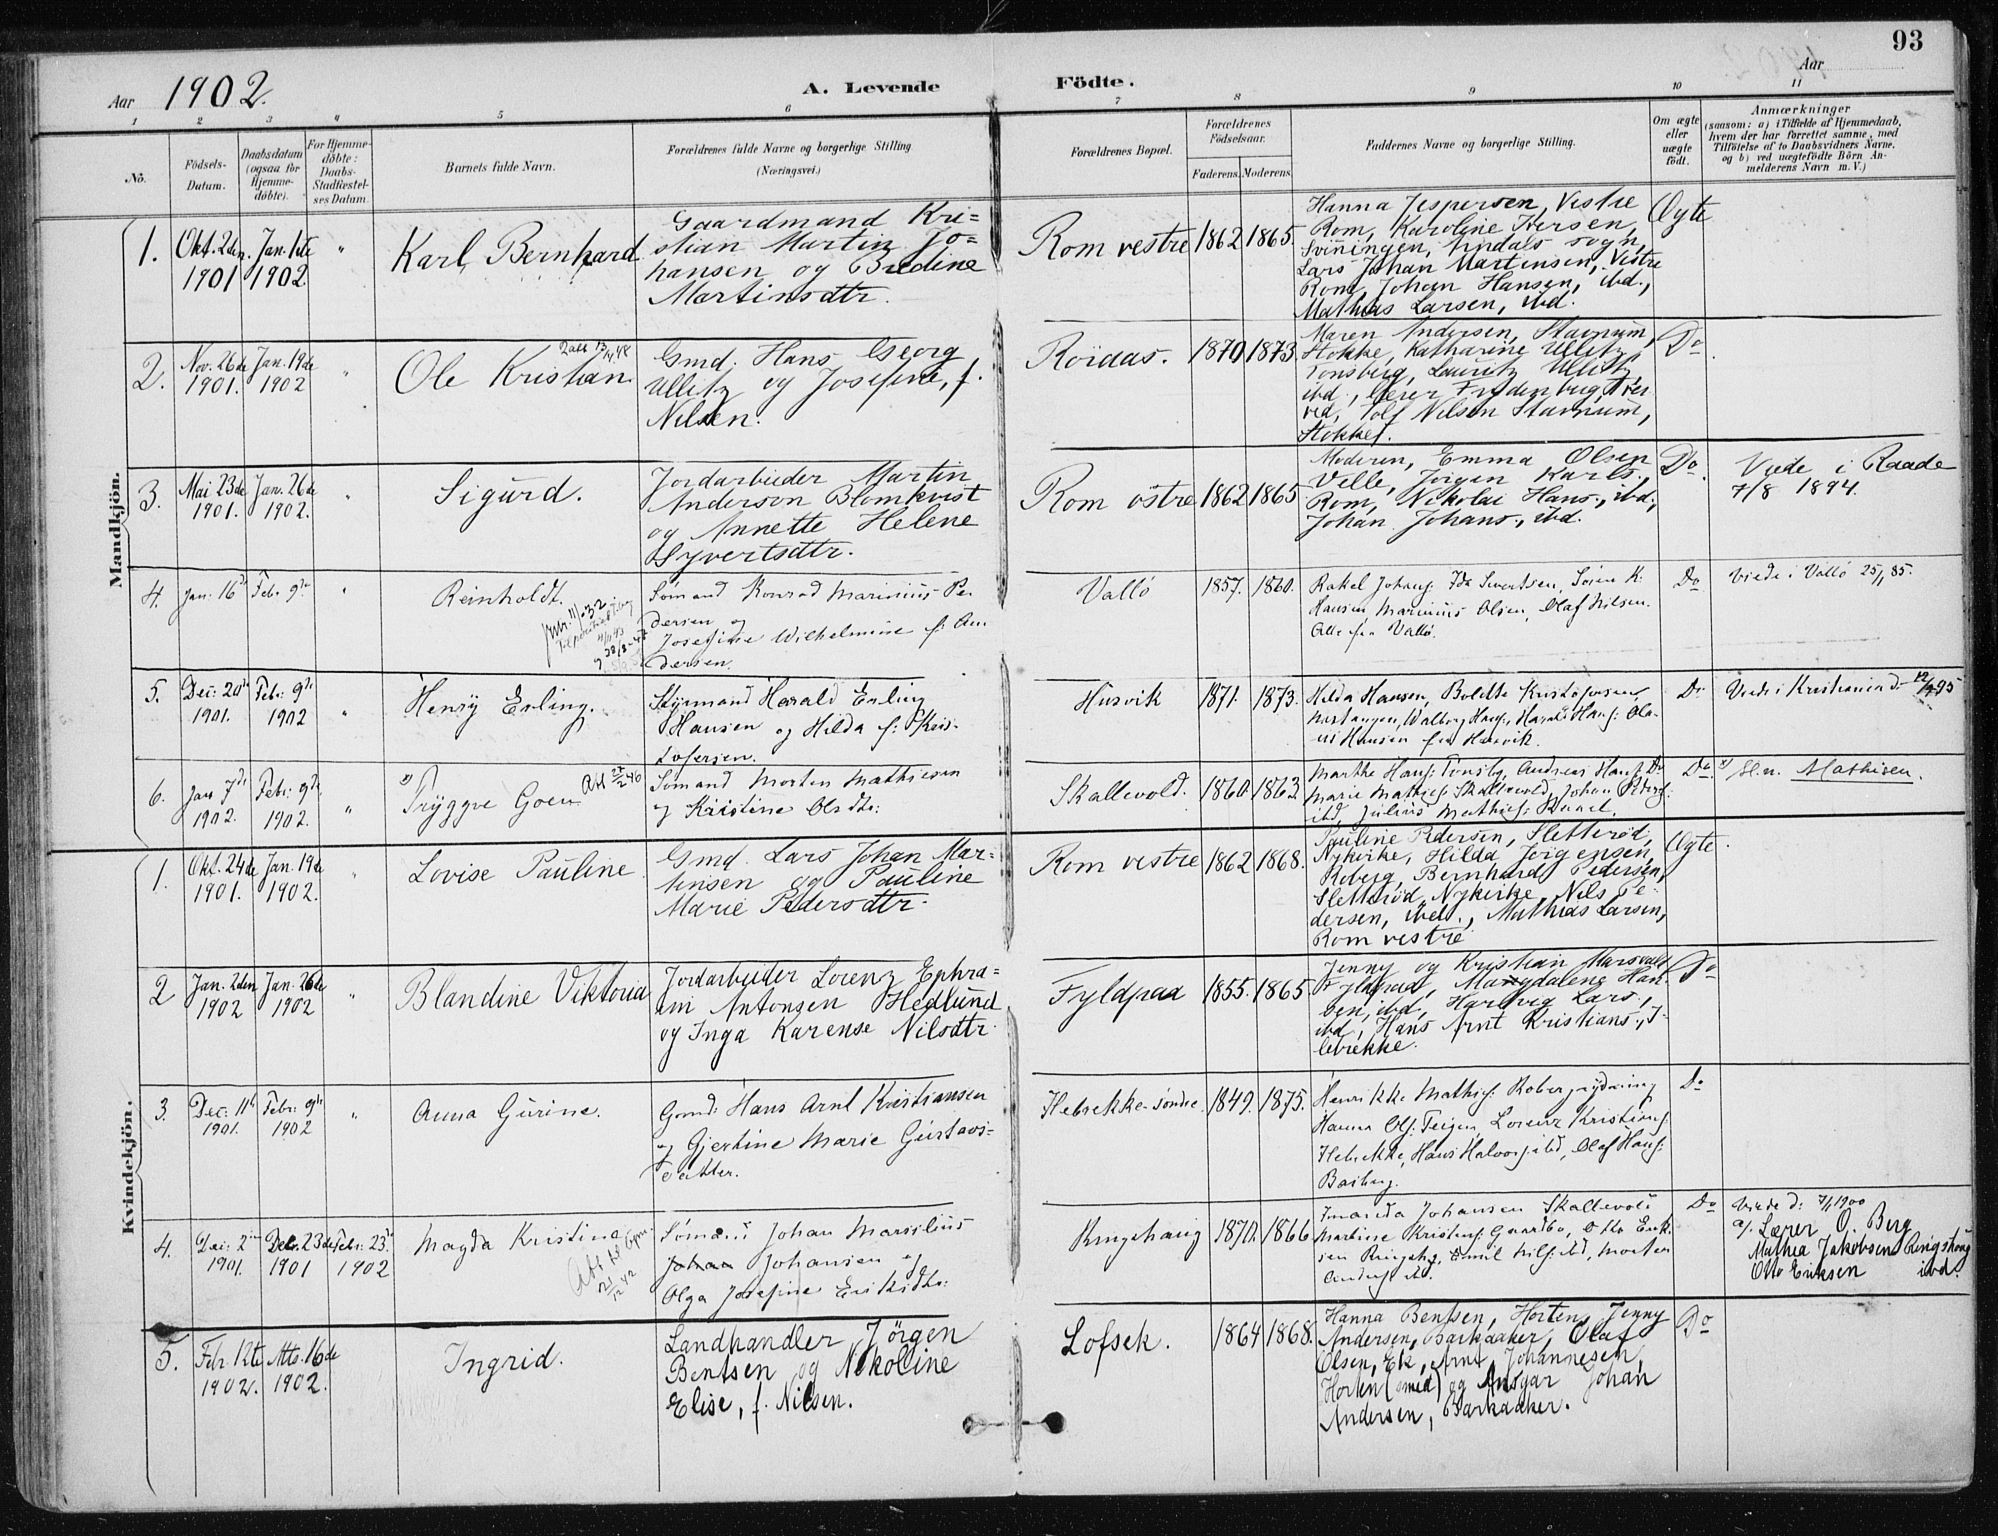 93
Aar 1902.
A. Levende Födte.
Aar
1 2 3 4 5 6 7 8 9 10 11
No.
Födsels-Datum.
Daabsdatum (ogsaa for Hjemme-døbte).
For Hjemme-døbte: Daabs-Stadfæstel-ses Datum.
Barnets fulde Navn.
Forældrenes fulde Navne og borgerlige Stilling (Næringsvei.)
Forældrenes Bopæl.
Forældrenes Födselsaar.
Faderens. Moderens.
Faddernes Navne og borgerlige Stilling.
Om ægte eller uægte født.
Anmærkninger
(saasom: a) i Tilfælde af Hjemmedaab,
hvem der har forrettet samme, med
Tilföielse af to Daabsvidners Navne,
og b) ved uægtefödte Börn An-
melderens Navn m. V.)
Mandkjön.
1. Okt. 2den 1901 Jan. 1ste 1902. " Karl Bernhard
Gaardmand Kri-
stian Martin Jo-
hansen og Bredine
Martinsdtr.
Rom vestre 1862 1865.
Hanna Jespersen, Vestre
Rom, Karoline Iversen,
Svinningen, Undals sogn,
Lars Johan Martinsen, Vestre
Rom, Johan Hansen, ibd.,
Mathias Larsen, ibd.
Ægte
2. Nov. 26de 1901. Jan. 19de 1902 " Ole Kristian
Gmd. Hans Georg
Ullitz og Josefine, f.
Nilsen.
Roiaas. 1870 1873
Maren Andersen, Stavnum,
Stokke, Katharine Ullitz,
Tønsberg, Lauritz Ullitz,
ibd., Lærer Frydenberg,
Tolf Nilsen Stavnum,
Stokke.
Do
3. Mai 23de 1901. Jan. 26de 1902. " Sigurd.
Jordarbeider Martin
Anderson Blomkvist
og Annette Helene
Syvertsdtr.
Rom östre 1862 1865
Moderen, Emma Olsen
Ville, Jörgen Karls.,
Rom, Nikolai Hans., ibd.,
Johan Johans., ibd.
Do.
Viede i Raade
7/8 1894.
4. Jan. 16de Feb. 9de " Reinholdt.
Sömand Konrad Marinius Pe-
dersen og
Josefine Wilhelmine f: An-
dersen.
Vallö 1857. 1860.
Rakel Johans: Ida Sivertsen, Sören K.
Hansen, Marinius Olsen, Olaf Nilsen.
Alle fra Vallö.
Do
Viede i Vallö 25/1 85.
5. Dec: 20de 1901. Febr: 9de 1902 " Henry Erling.
Styrmand Harald Erling
Hansen og Hilda f: Kris-
tofersen.
Husvik 1871. 1873.
Hilda Hansen, Bolette Kristofersen
Walborg Hans:, Harald Hans: Ola-
us Hansen fra Husvik.
Do
Viede i Kristiania d:
6. Jan 7de 1902. Febr: 9de 1902. " Tryggve Goen
Sömand Morten Mathiesen
og Kristine Olsdtr:
Skallevold. 1860. 1863
Marthe Hans: Tönsbg, Andreas Hans: Do
Marie Mathies: Skallevold, Johan Peders:
ibd, Julius Mathies:
Do.
Sl.n. Mathisen.
Kvindekjön.
1. Okt. 24de 1901. Jan. 19de 1902. " Lovise Pauline.
Gmd. Lars Johan Mar-
tinsen og Pauline
Marie Pedersdtr.
Rom vestre 1862 1868.
Pauline Pedersen, Sletteröd,
Nykirke, Hilda Jörgensen,
Roberg, Bernhard Pedersen,
Sletteröd, Nykirke, Nils Pe-
dersen, ibd., Mathias Larsen,
Rom vestre
Ægte.
2 Jan. 2den 1902 Jan. 26de 1902 " Blandine Viktoria
Jordarbeider Lorenz Ephra-
im Antonsen Hedlund
og Inga Karense Nilsdtr.
Fyldpaa 1855. 1865
Jenny og Kristian
Fyldpaa, Magdalene Han-
sen, ibd, Hartvig Lars.,
ibd, Hans Arnt Kristians., I-
lebrekke.
Do
3. Dec: 11te 1901. Febr: 9de 1902 " Anna Gurine.
Gmd: Hans Arnt Kristiansen
og Gjertine Marie Gustavs-
datter.
Ilebrekke söndre. 1849. 1875.
Henrikke Mathies: Roberg rydning
Hanna Ols: Teigen Lorenz Kristians:
Ilebrekke, Hans Halvors: ibd, Olaf Hans:
Basberg.
Do
4. Dec: 2den 1901. Dec. 23de 1901 Febr: 23de 1902 Magda Kristine
Sömand Johan Marsilius
Johan Johansen og
Olga Josefine Eriksdtr:
Ringshaug 1870. 1866
Imanda Johansen Skallevold
Martine Kristens: Gaardbo, Otto Erik-
sen Ringshg, Emil Nils: ibd, Morten
Anders: ibd.
Do
Viede d: 7/1 1900
af Lærer O. Berg
Mathea Jakobsen Ringshaug
Otto Eriksen ibd.
5. Febr. 12te 1902. Mts. 16de 1902. Ingrid.
Landhandler Jörgen
Bentsen og Nikoline
Elise, f. Nilsen.
Lofsek. 1864 1868.
Hanna Bentsen, Horten, Jenny
Andersen, Barkaaker, Olaf
Olsen, Ek, Arnt Johannesen,
Horten (smed) og Ansgar Johan
Andersen, Barkaaker.
Do